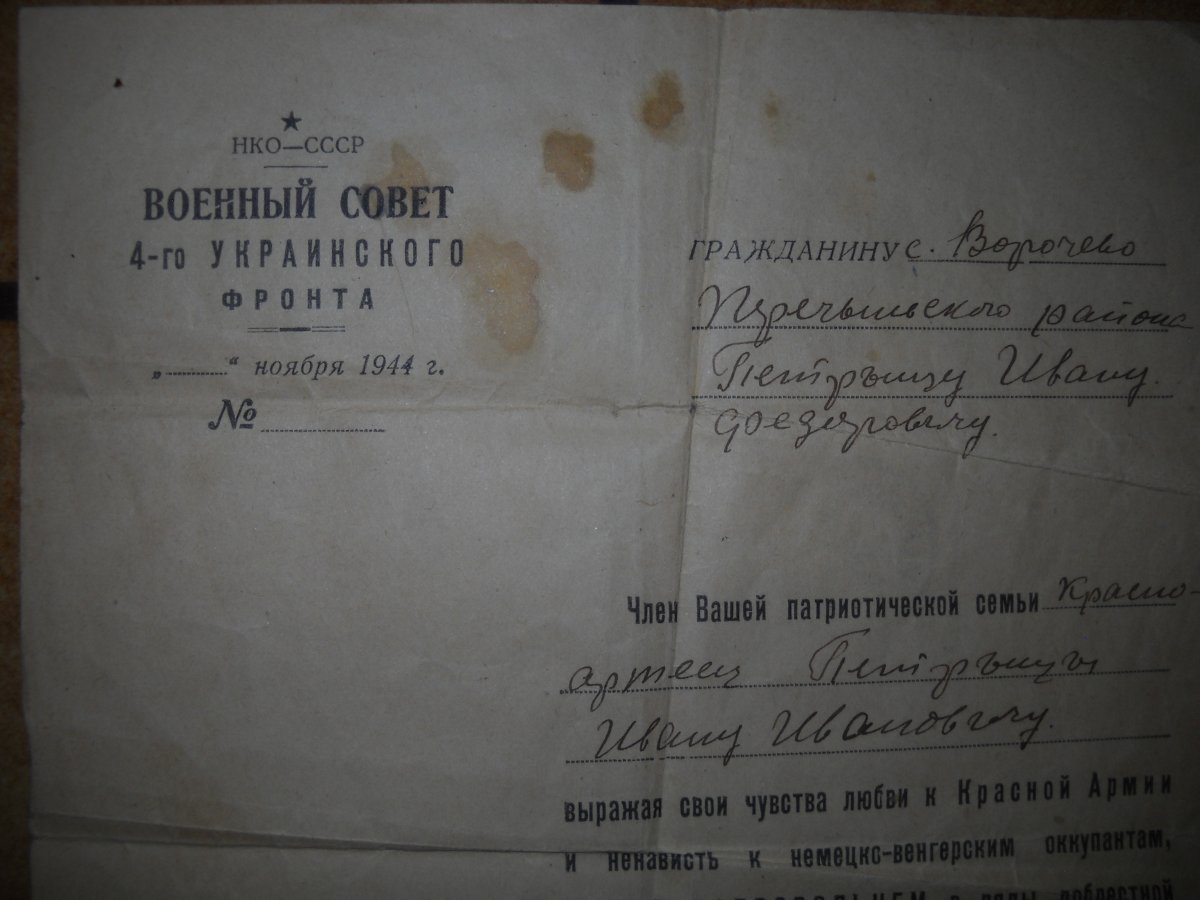 НКО—СССР
ВОЕННЫЙ СОВЕТ
4-го УКРАИНСКОГО
ФРОНТА
„........“ ноября 1944 г.
№
ГРАЖДАНИНУ с. Ворочево
Перечынского района
Петрьшцу Ивану
Федоровычу.
Член Вашей патриотической семьи Красно-
армец
Ивану Ивановычу.
выражая свои чувства любви к Красной Армии
и ненависть к немецко-венгерским оккупантам,
в ряды доблестной